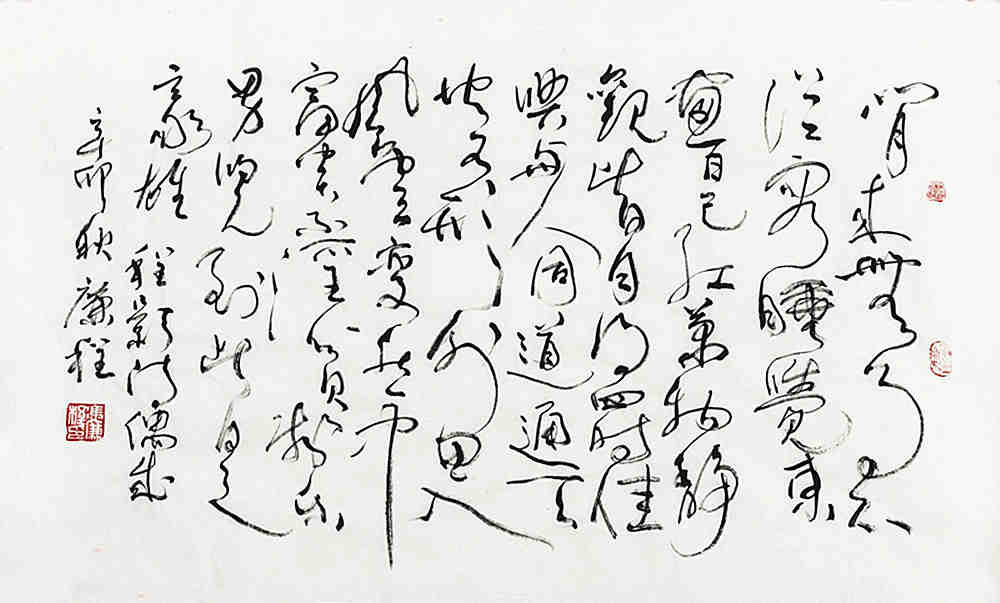 閒来無事不
從容睡覺東
窗日已红萬物靜
觀皆自得四時佳
興與人同道通天
地有形外思入
風雲變態中
富貴不淫貧賤樂
男兒到此是
豪雄 程顥诗偶成
辛卯秋廉